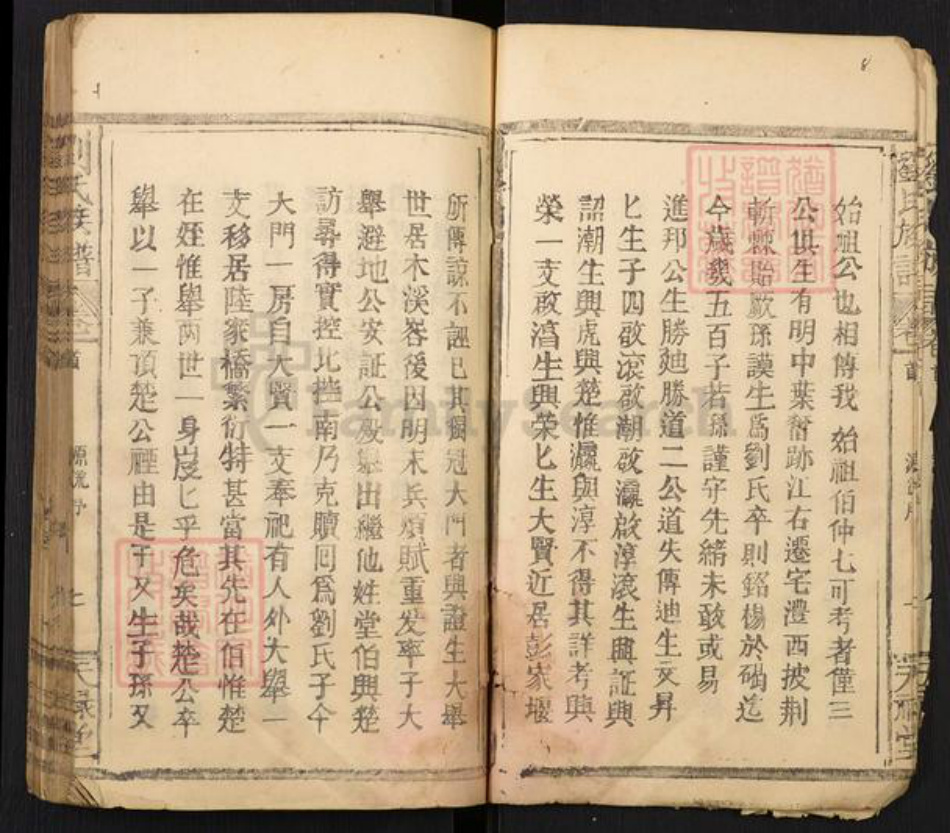 8
始祖公也相傳我 始祖伯仲七可考者僅三
公俱生有明中葉奮跡江右遷宅澧西披荆
斬棘貽厥孫謨生爲劉氏卒則銘楊於碣迄
今歲幾五百子若孫謹守先緒未敢或易
進邦公生勝廸勝道二公道失傳迪生文昇
匕生子四啟滾啟潮啟瀛啟淳滾生興証興
詔潮生興虎興楚惟瀛與淳不得其詳考興
榮一支啟濸生興榮匕生大賢近居彭家堰
所傳諒不誣已其獨冠大門者興證生大舉
世居木溪峇後因明末兵燹賦重发率子大
舉避地公安証公殁舉出繼他姓堂伯興楚
訪尋得實控北控南乃克贖囘爲劉氏子今
大門一房自大賢一支奉祀有人外大舉一
支移居陸家橋繁衍特甚當其先在伯惟楚
在姪惟舉两世一身岌匕乎危矣哉楚公卒
舉以一子兼頂楚公禋由是子又生子孫又
劉氏族譜
卷首
源流序
七
天祿堂
FamilySearch